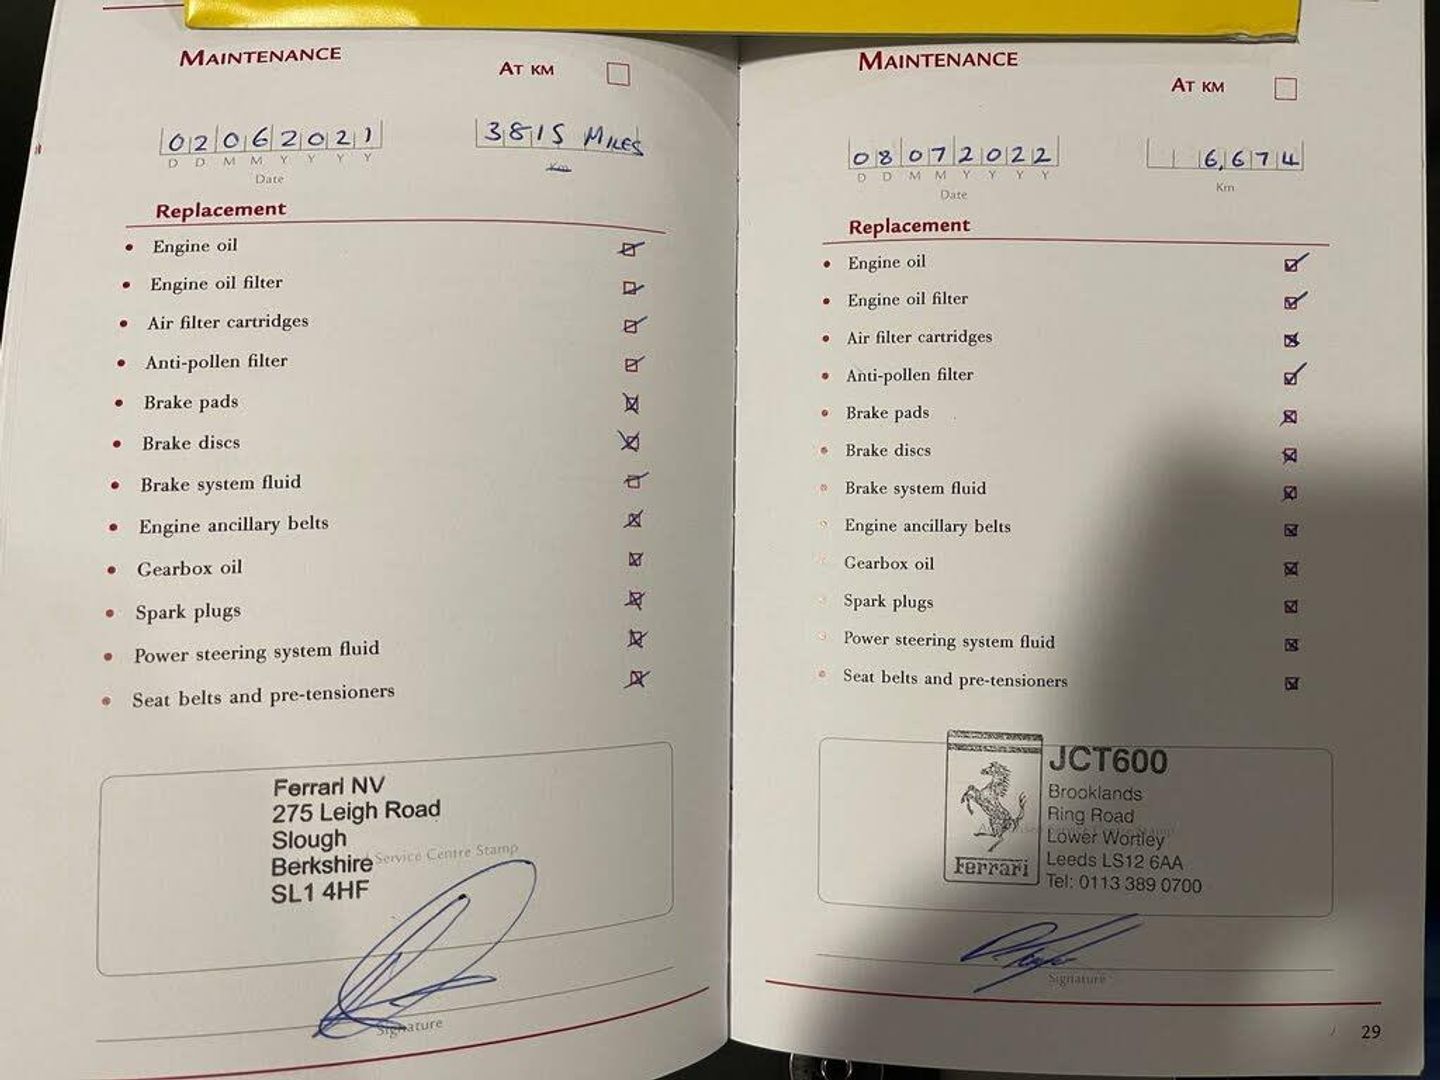 MAINTENANCE
AT KM
02062021
3815 MILES
D D M M Y Y Y Y
Km
Date
Replacement
• Engine oil
• Engine oil filter
• Air filter cartridges
• Anti-pollen filter
• Brake pads
• Brake discs
• Brake system fluid
• Engine ancillary belts
• Gearbox oil
• Spark plugs
• Power steering system fluid
• Seat belts and pre-tensioners
Ferrari NV
275 Leigh Road
Slough
Berkshire
SL1 4HF
Service Centre Stamp
Signature
MAINTENANCE
AT KM
08072022
6,674
D D M M Y Y Y Y
Km
Date
Replacement
• Engine oil
• Engine oil filter
• Air filter cartridges
• Anti-pollen filter
• Brake pads
• Brake discs
• Brake system fluid
• Engine ancillary belts
• Gearbox oil
• Spark plugs
• Power steering system fluid
• Seat belts and pre-tensioners
JCT600
Brooklands
Ring Road
Lower Wortley
Leeds LS12 6AA
Tel: 0113 389 0700
Ferrari
Signature
29